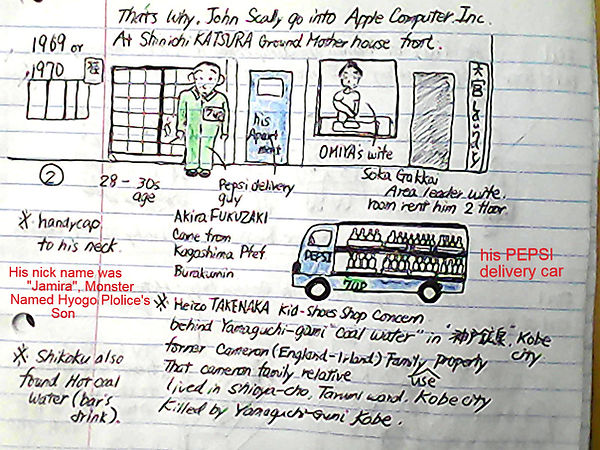 That's Why, John Scally go into Apple Computer, Inc.
At Shinichi KATSURA Ground Mother house front.
1969 or
1970
7up
his
Apart
ment
OMIYA's wife
大宮Laundry
②
28 - 30s
age
Pepsi delivery
guy
Soka Gakkai
Area leader wife.
room rent him 2 floor.
※ handycap
to his neck.
Akira FUKUZAKI
Came from
Kagoshima Ptef
Burakumin
PEPSI
7up
his PEPSI
delivery car
His nick name was
"Jamira", Monster
Named Hyogo Plolice's
Son
※ Heizo TAKENAKA kid-shoes shop Concern
behind Yamaguchi-gumi "Coal water" in "神戸鉱泉", Kobe
city
former Cameron (England-Irland) Family property
use
That cameron family relative
lived in Shioya-cho, Tarumi ward, Kobe city
killed by Yamaguchi-Gumi Kobe.
※ Shikoku also
found Hot coal
water (bar's
drink).